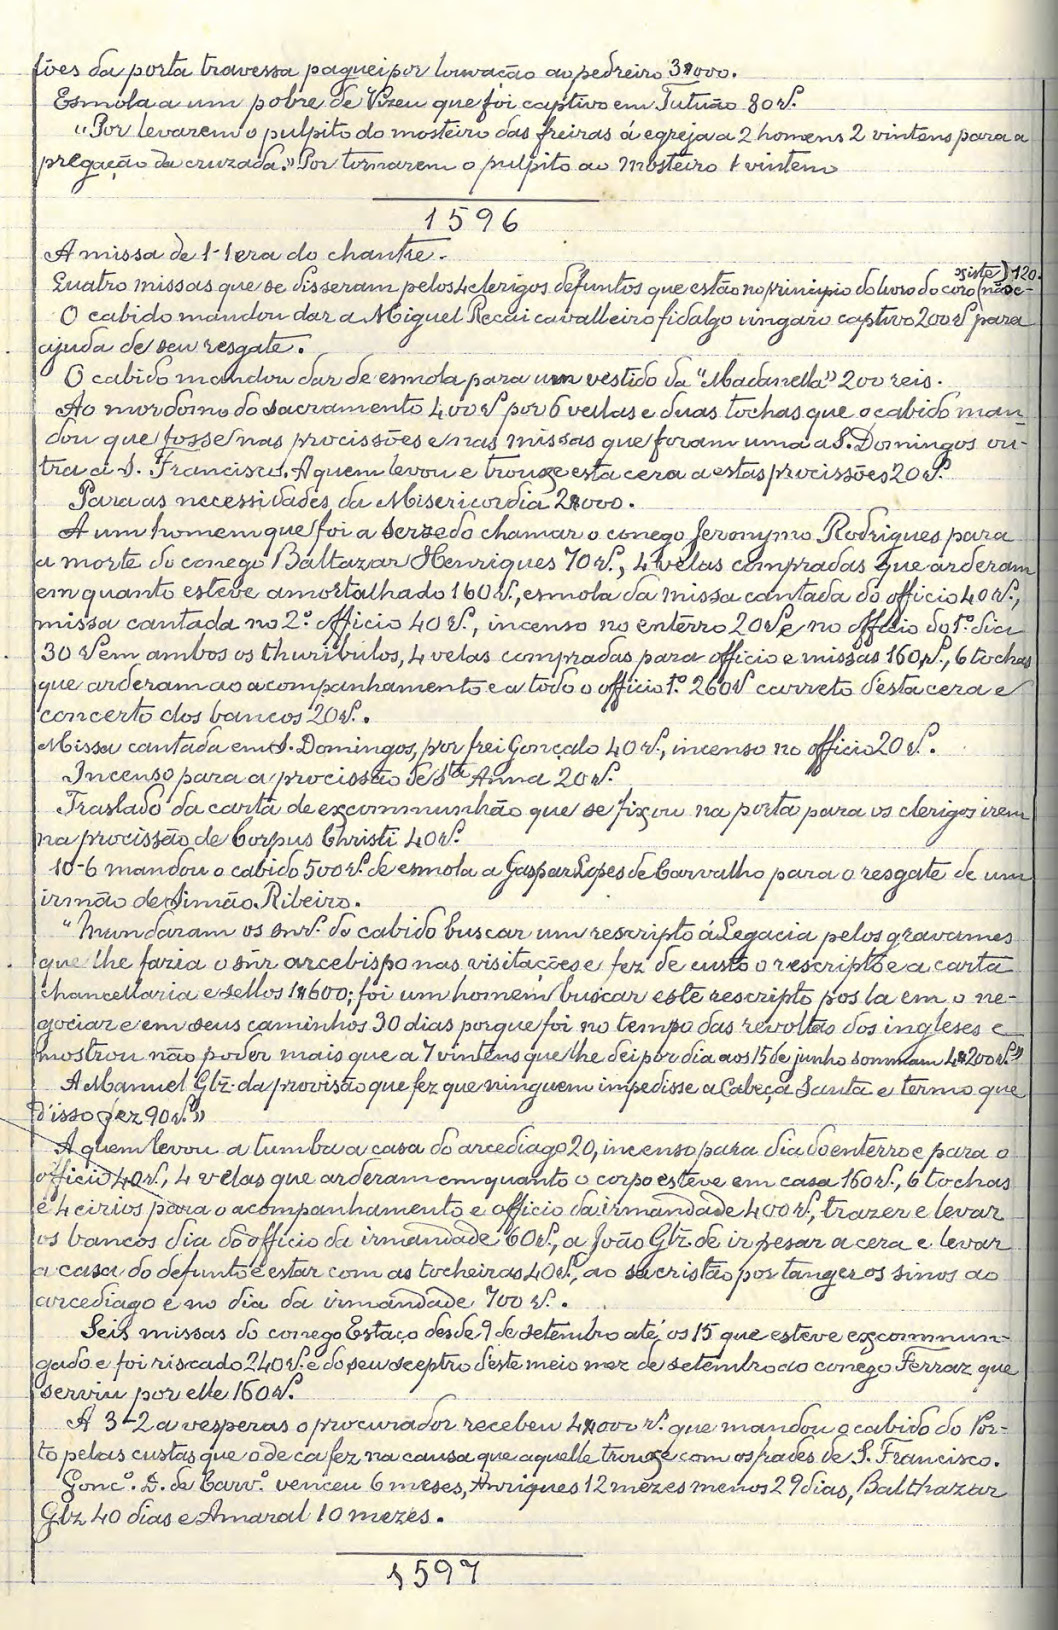 tões da porta travessa paguei por louvação ao pedreiro 3$000.
Esmola a um pobre de Vizeu que foi captivo em Tutuão 80 rs.
"Por levarem o pulpito do mosteiro das freiras á egreja a 2 homens 2 vintens para a
pregação da cruzada." Por tornarem o pulpito ao mosteiro 1 vintem
1596
A missa de 1-1 era do chantre.
Quatro missas que se disseram pelos 4 clerigos defuntos que estão no principio do livro do coro (não e-
xiste) 120.
O cabido mandou dar a Miguel Recai cavalleiro fidalgo ungaro captivo 200 rs para
ajuda de seu resgate.
O cabido mandou dar de esmola para um vestido da "Madanella" 200 reis.
Ao mordomo do sacramento 400 rs por 6 vellas e duas tochas que o cabido man-
dou que fosse nas procissões e nas missas que foram uma a S. Domingos ou-
tra a S. Francisco. A quem levou e trouxe esta cera a estas procissões 20 rs.
Para as necessidades da Misericordia 2$000.
A um homem que foi a Serzedo chamar o conego Jeronymo Rodrigues para
a morte do conego Baltazar Henriques 70 rs., 4 velas compradas que arderam
emquanto esteve amortalhado 160 rs., esmola da missa cantada do officio 40 rs.,
missa cantada no 2.º officio 40 rs., incenso no enterro 20 rs e no officio do 1.º dia
30 rs em ambos os thuribulos, 4 velas compradas para officio e missas 160 rs., 6 tochas
que arderam ao acompanhamento e a todo o officio 1.º 260 rs carreto d'esta cera e
concerto dos bancos 20 rs.
Missa cantada em S. Domingos, por frei Gonçalo 40 rs., incenso no officio 20 rs.
Incenso para a procissão de S.ta Anna 20 rs.
Traslado da carta de excommunhão que se fixou na porta para os clerigos irem
na procissão de Corpus Christi 40 rs.
10-6 mandou o cabido 500 rs. de esmola a Gaspar Lopes de Carvalho para o resgate de um
irmão de Simão Ribeiro.
"Mandaram os snrs. do cabido buscar um rescripto á Legacia pelos gravames
que lhe fazia o snr arcebispo nas visitações e fez de custo o rescripto e a carta
chancellaria e sellos 1$600; foi um homem buscar este rescripto pos la em o ne-
gociar e em seus caminhos 30 dias porque foi no tempo das revoltas dos ingleses e
mostrou não poder mais que a 7 vintens que lhe dei por dia aos 15 de junho sommam 4$200 rs."
A Manuel Glz. da provisão que fez que ninguem impedisse a Cabeça Santa e termo que
d'isso fez 90 rs."
A quem levou a tumba a casa do arcediago 20, incenso para dia do enterro e para o
officio 40 rs., 4 velas que arderam emquanto o corpo esteve em casa 160 rs., 6 tochas
e 4 cirios para o acompanhamento e officio da irmandade 400 rs., trazer e levar
os bancos dia do officio da irmandade 60 rs., a João Glz. de ir pesar a cera e levar
a casa do defunto e estar com as tocheiras 40 rs., ao sacristão por tanger os sinos ao
arcediago e no dia da irmandade 700 rs.
Seis missas do conego Estaço desde 9 de setembro até os 15 que esteve excommun-
gado e foi riscado 240 rs. e do seu sceptro d'este meio mez de setembro ao conego Ferraz que
serviu por elle 160 rs.
A 3-2 a vesperas o procurador recebeu 4$000 rs. que mandou o cabido do Por-
to pelas custas que o de ca fez na causa que aquelle trouxe com os frades de S. Francisco.
Gonc.º D. de Carv.º venceu 6 meses, Anriques 12 mezes menos 29 dias, Balthazar
Glz 40 dias e Amaral 10 mezes.
1597